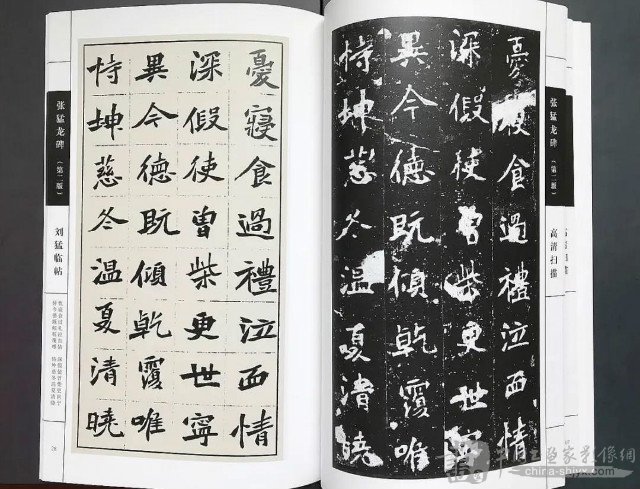 张猛龙碑（第二版）
刘猛临帖
憂寢食過禮泣血情
深假使曾柴更世寧
異今德既傾乾覆唯
恃坤慈冬溫夏清曉
憂寢食過禮泣血情
深假使曾柴更世寧
異今德既傾乾覆唯
恃坤慈冬溫夏清曉
张猛龙碑（第二版）
高清扫描
家影像網